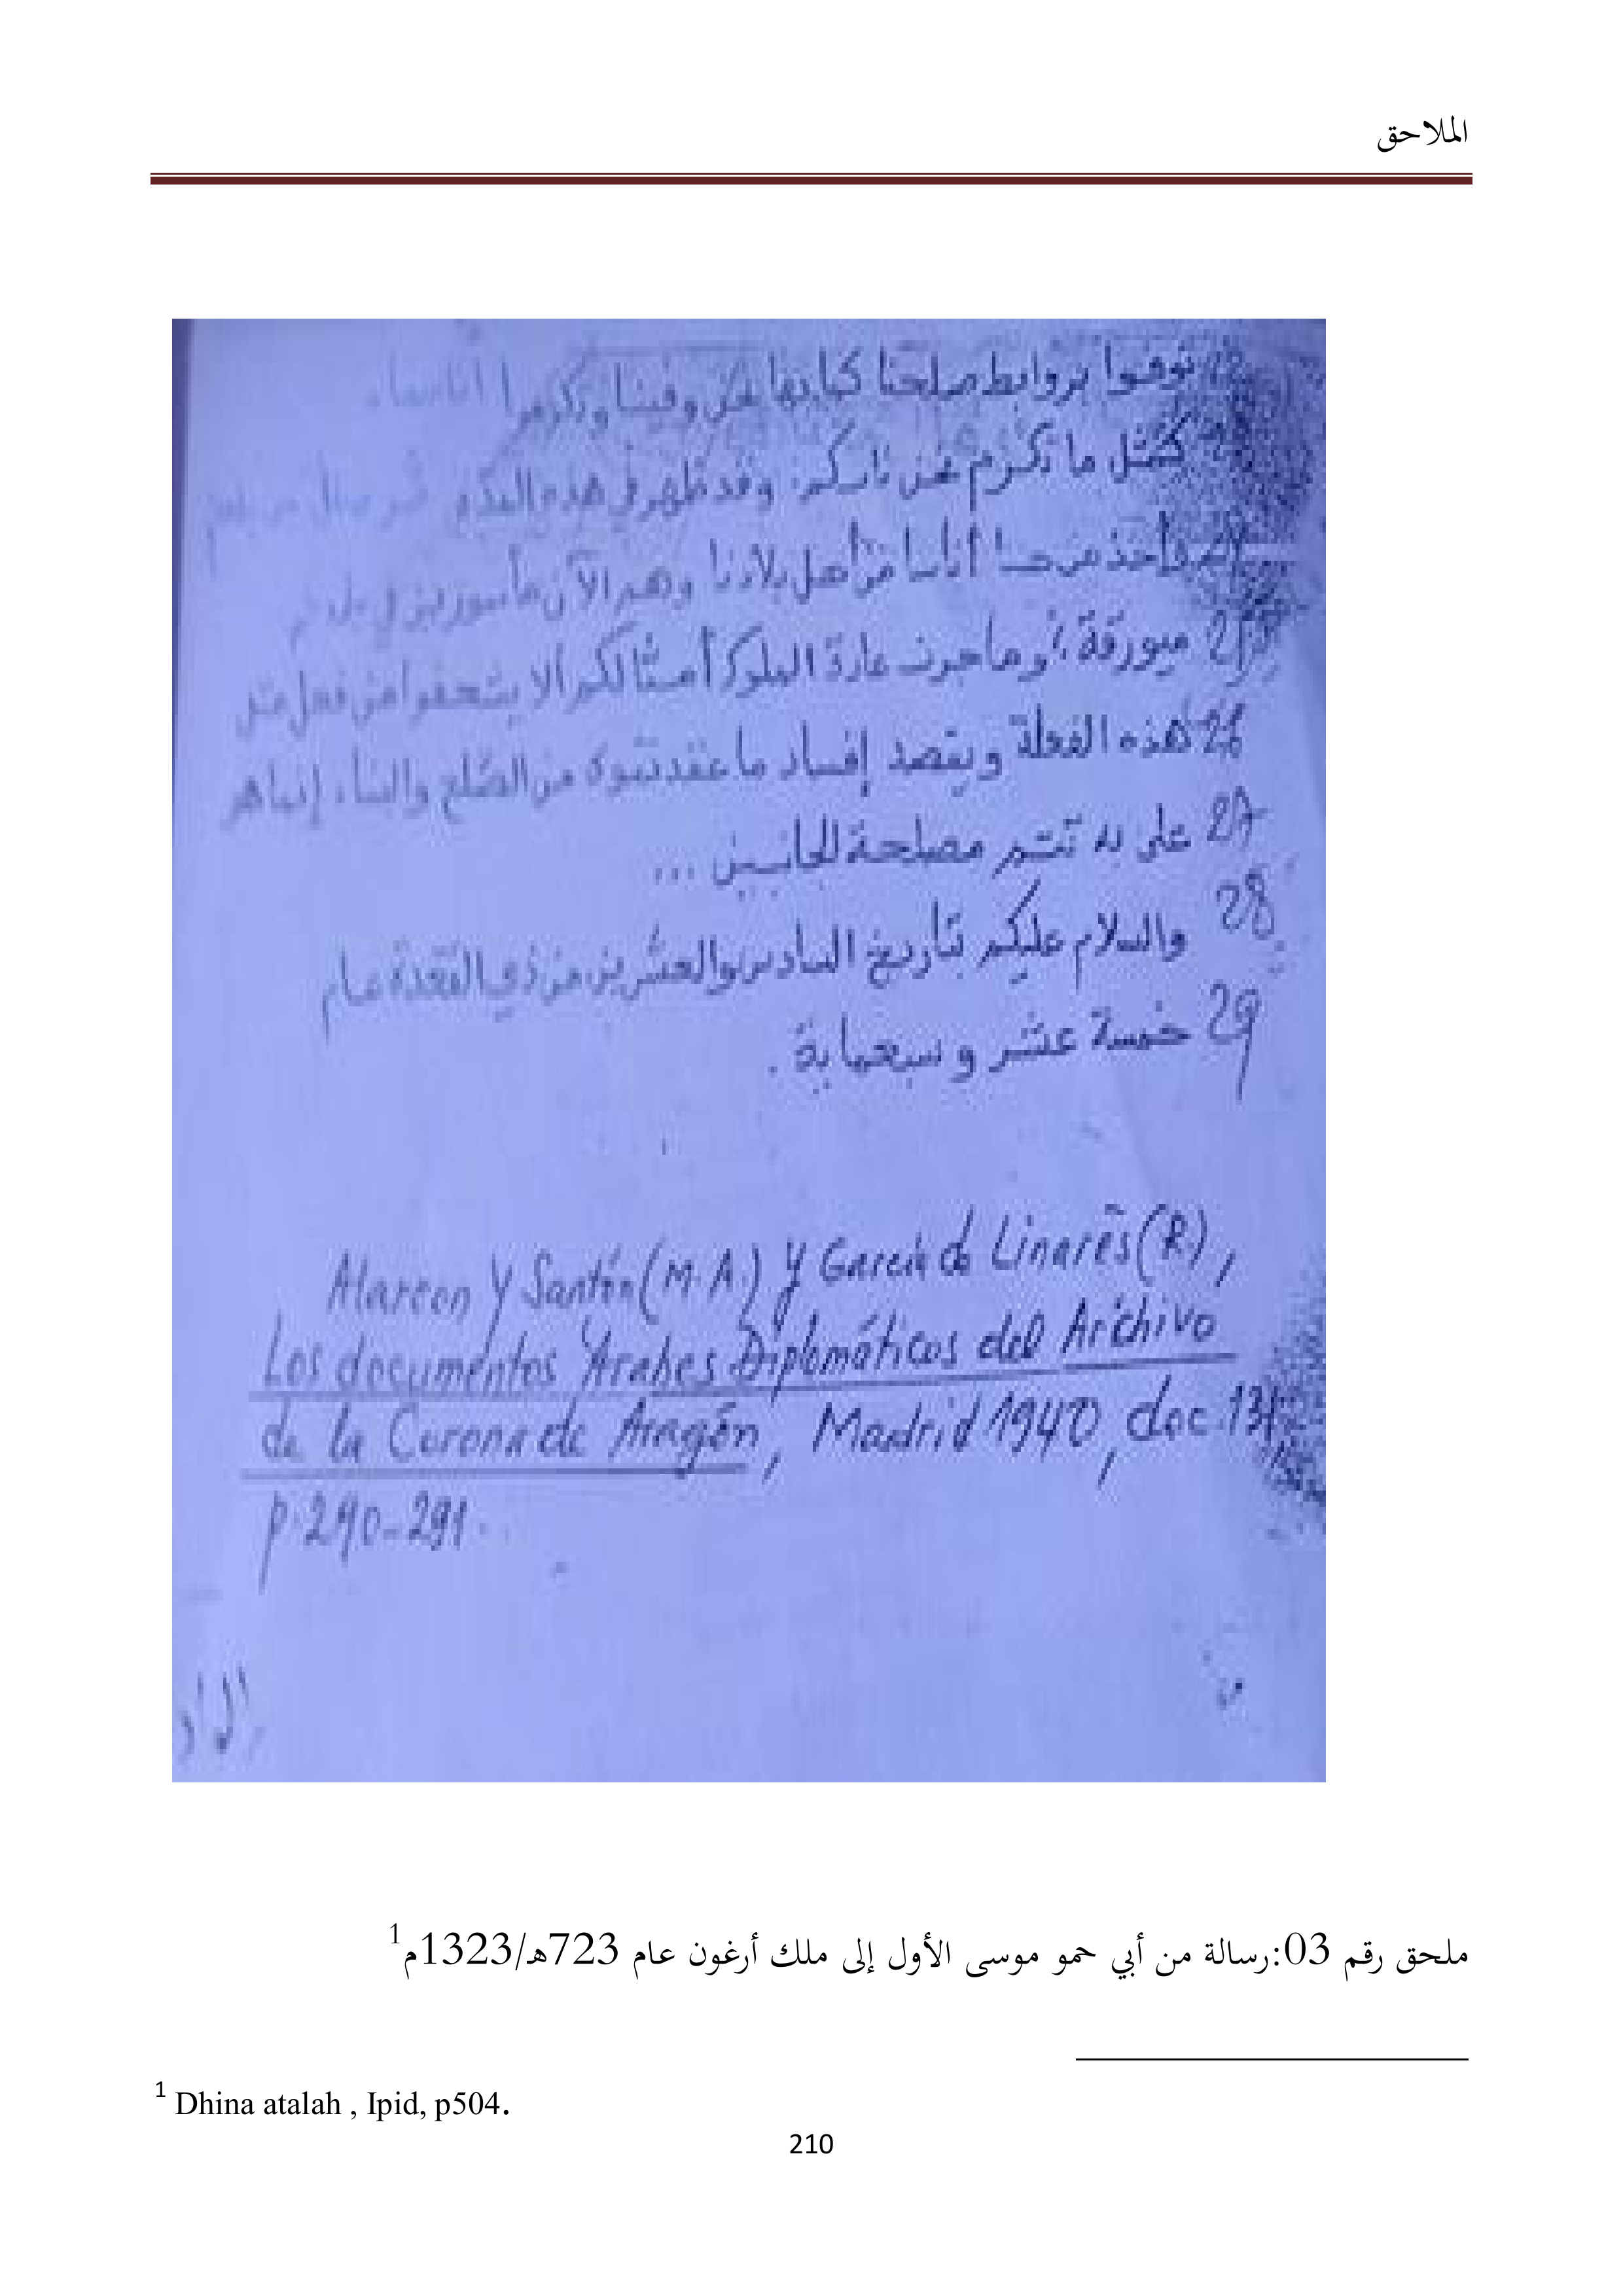 الملاحق
توفوا بروابط صلحنا كما بها نحن وفينا وتكرموا أناسنا
كمثل ما نكرم نحن ناسكم. وقد ظهر في هذه
وأخذ من أناسا من أهل بلادنا وهم الآن مأسورين في
25 ميورقة، وما جرت عادة الملوك أمثالكم ألا من فعل مثل
26 هذه الفعلة ويقصد إفساد ما عقدتموه من الصلح والبناء، إنما هو
27 على به تتم مصلحة للجانبين ...
28 والسلام عليكم بتاريخ السادس والعشرين من ذي القعدة عام
29 خمسة عشر وسبعماية.
Alarcon y Santón (M.A.) y García de Linares (R),
Los documentos Arabes Diplomáticos del Archivo
de la Corona de Aragón, Madrid 1940, doc
p.290-291.
ملحق رقم 03:رسالة من أبي حمو موسى الأول إلى ملك أرغون عام 723هـ/1323م1
1 Dhina atalah , Ipid, p504.
210